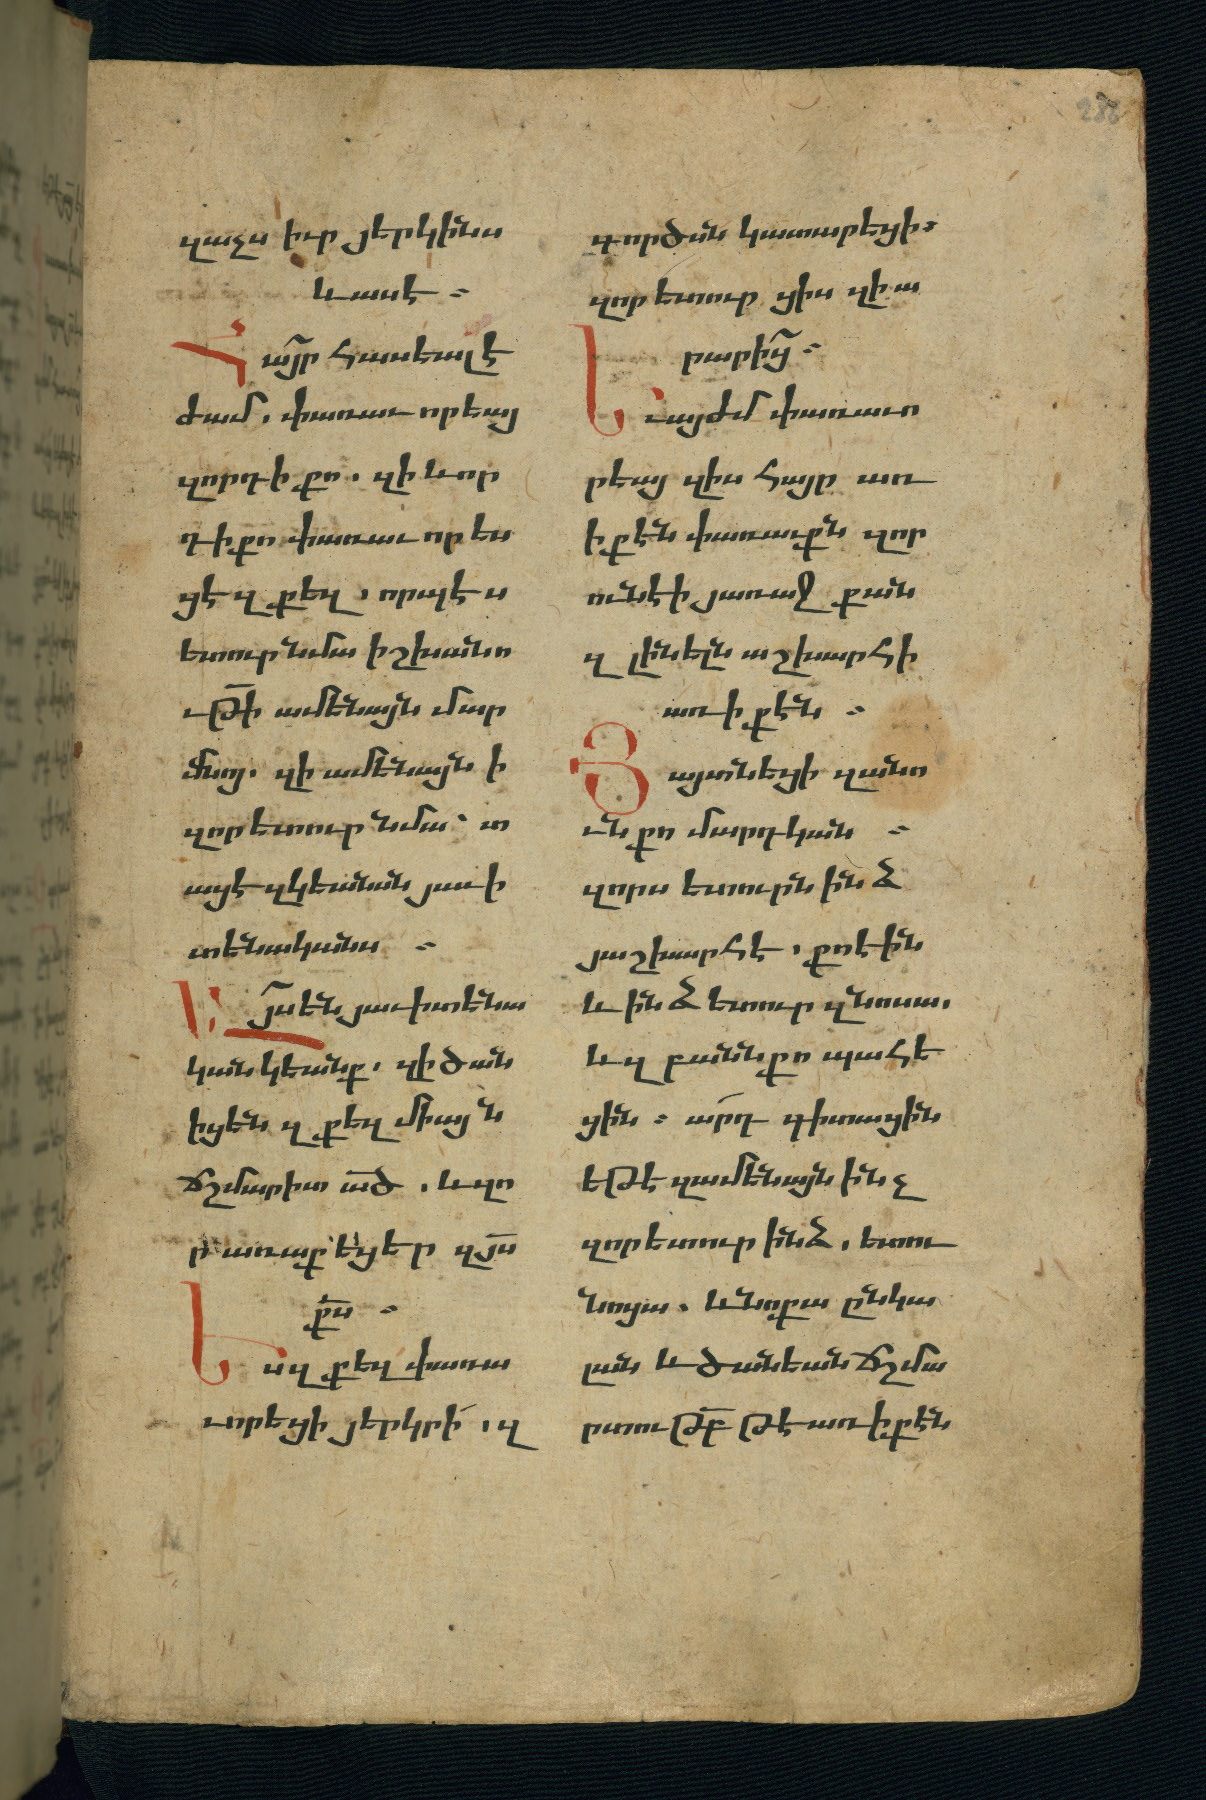 զաչս իւր յերկինս
և ասէ ։
Հայր հասեալ է
ժամ. փառաւորեայ
զորդի քո. զի և որ
դի քո փառաւորես
ցէ զքեզ, որպէս
ետուր նմա իշխանո
ւթի ամենայն մար
մնոյ. զի ամենայն ի
զոր ետուր նմա՝ տ
ացէ զկեանսն յաւի
տենականս ։
Այս են յաւիտենա
կան կեանք. զի ծան
իցեն զքեզ միայն
ճշմարիտ ած. և զո
ր առաքեցեր զյս
քս ։
Ես զքեզ փառա
ւորեցի յերկրի, զ
գործն կատարեցի.
զոր ետուր ցիս զի ա
րարից ։
Եւ այժմ փառաւո
րեայ զիս հայր առ
ի քէն փառաւքն զոր
ունէի յառաջ քան
զլինելն աշխարհի
առ ի քէն ։
Յայտնեցի զանո
ւն քո մարդկան ։
զորս ետուրն ինձ
յաշխարհէ, քո էին
և ինձ ետուր զնոսա.
և զբանն քո պահե
ցին ։ արդ գիտացին
եթէ զամենայն ինչ
զոր ետուր ինձ, ետու
նոցա. և նոքա ընկա
լան և ծանեան ճշմա
րտութբ թէ առ ի քէն
286